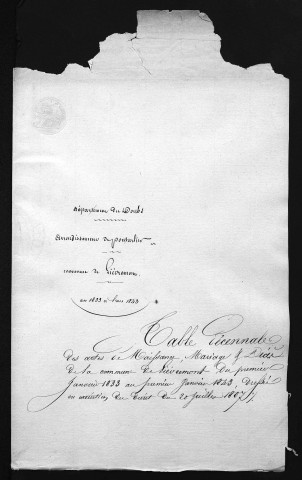 Département du Doubs
Arrondissement de pontarlier
commune de Liévremont
an 1833 à l'an 1843
Table Décennale
des actes de Naissance, Mariage & Décès
de la commune de Liévremont Du premier
Janvier 1833 au premier Janvier 1843, Dressé
en exécution du Décret du 20 Juillet 1807